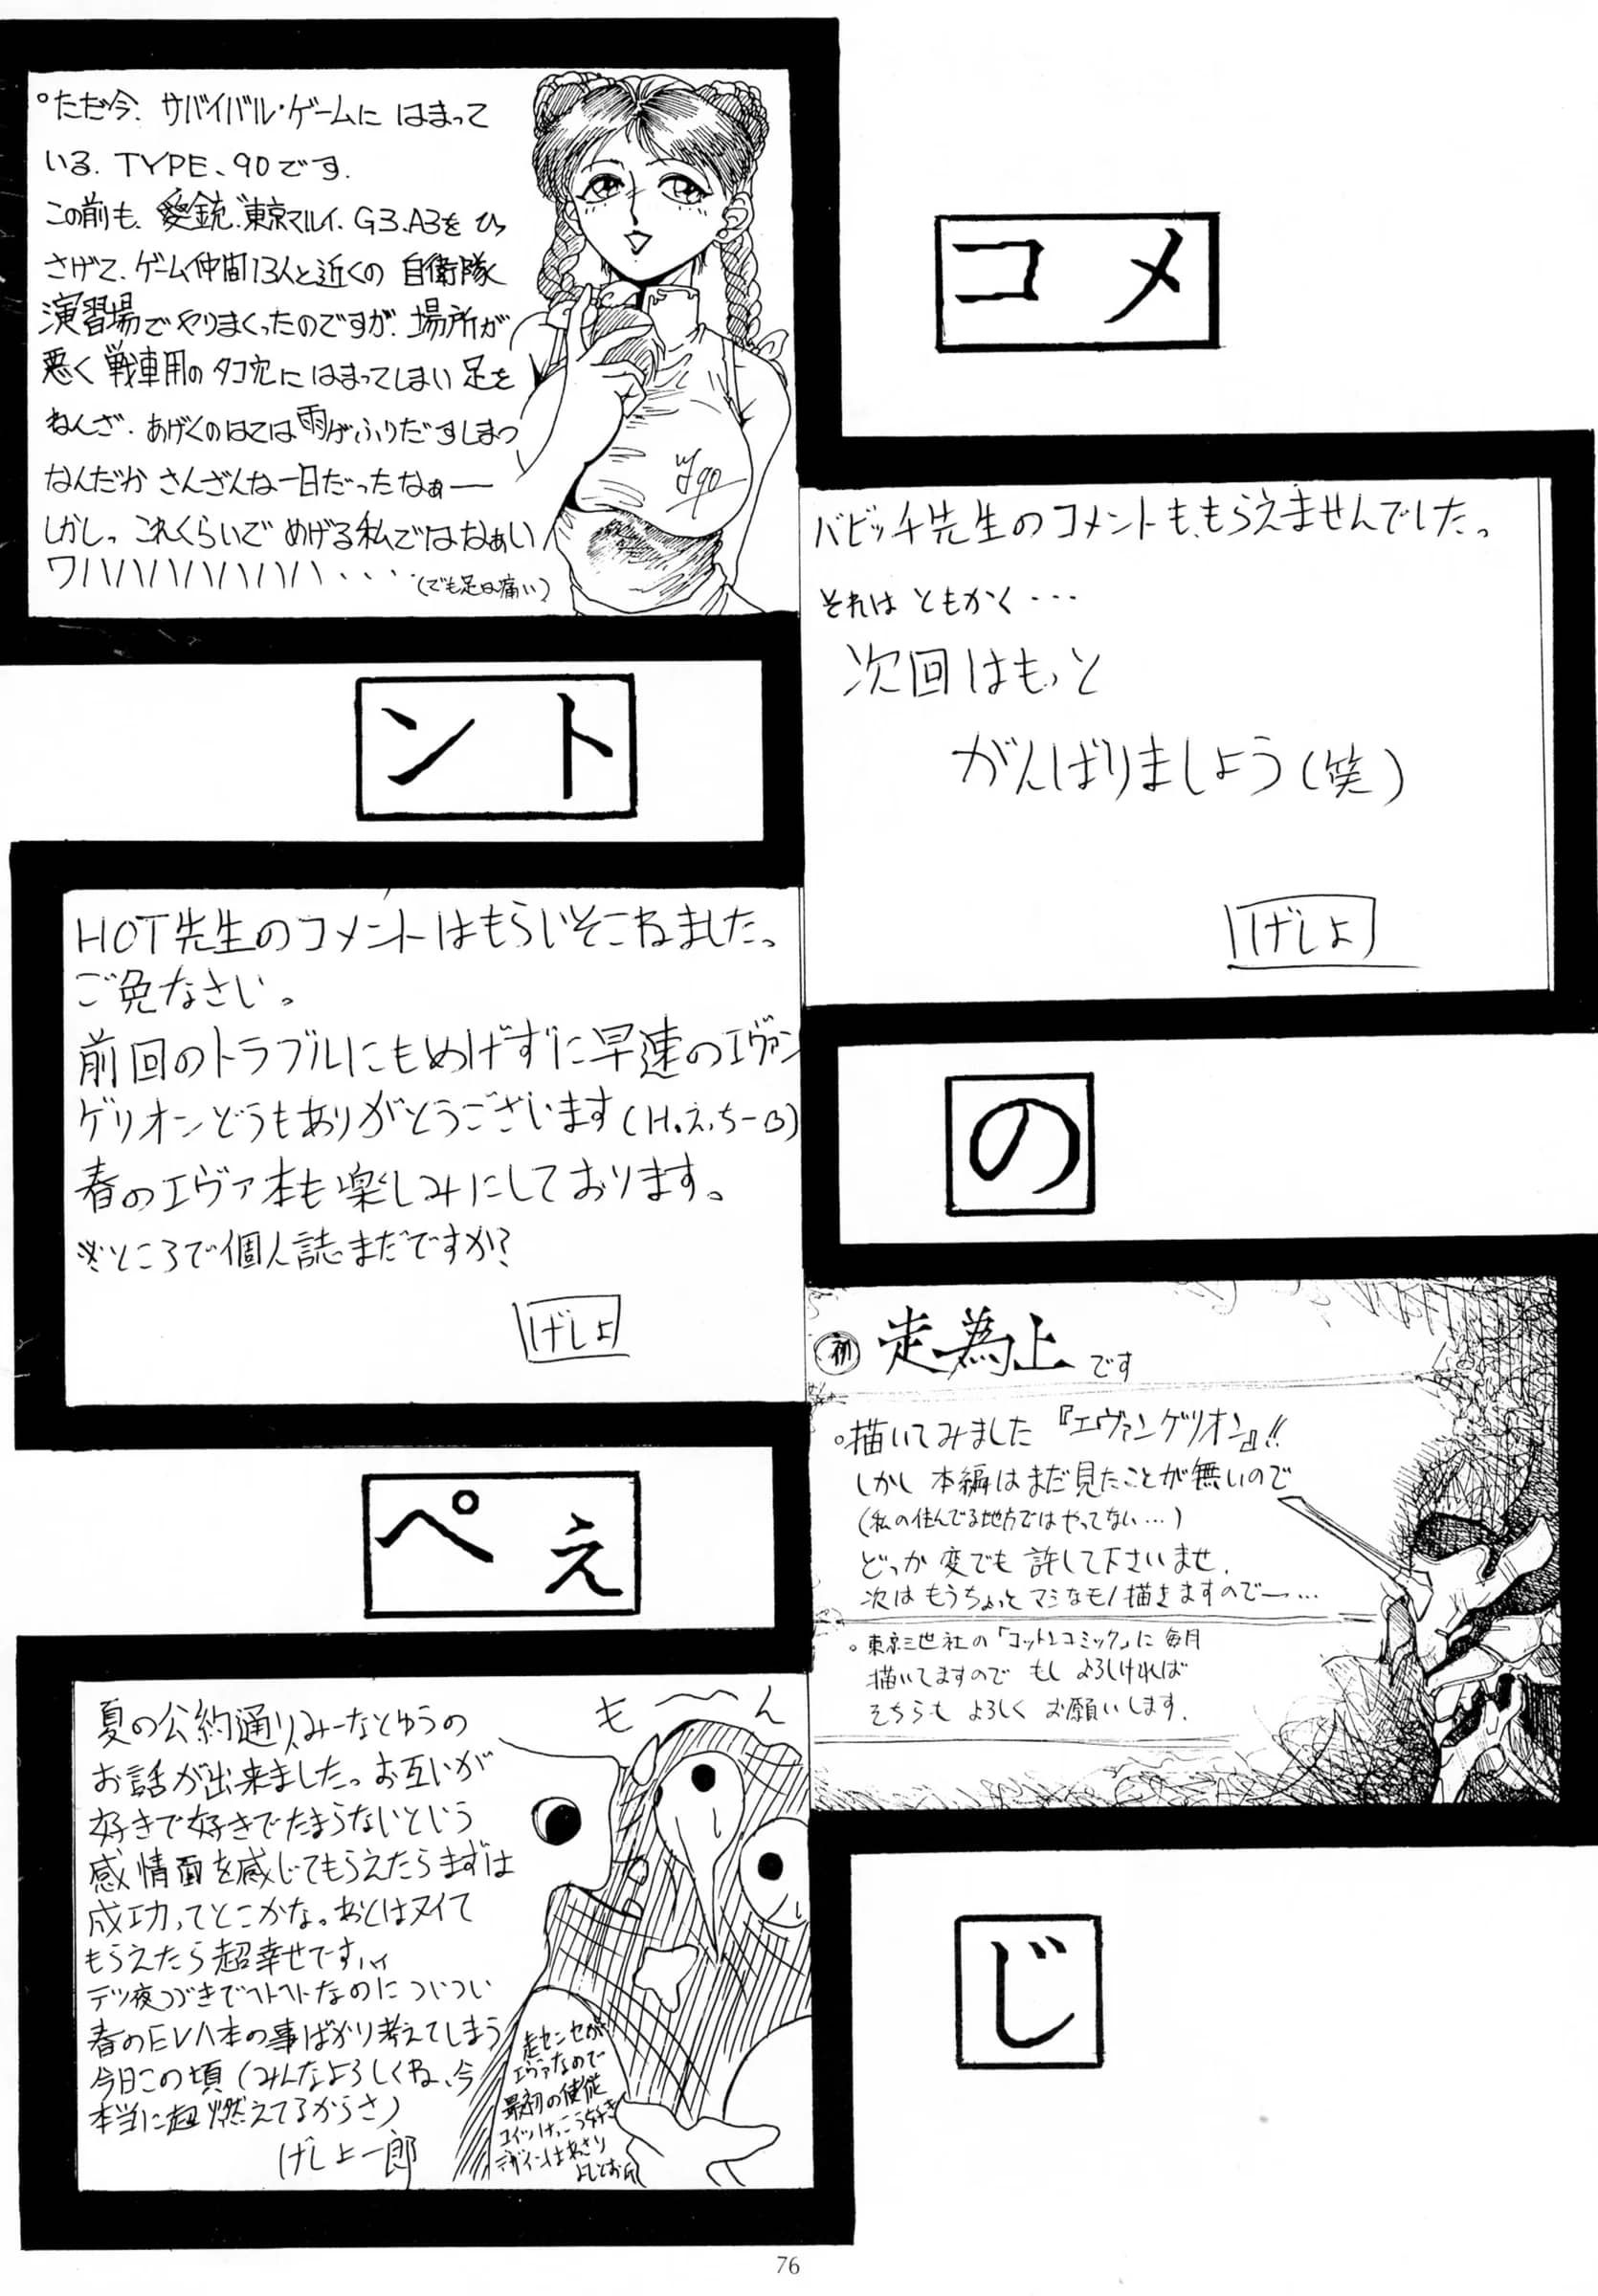 コメ
ント
の
ぺぇ
じ
○ただ今、サバイバル・ゲームに はまって
いる、TYPE、90です。
この前も、愛銃、東京マルイ、G3、A3を ひっ
さげて、ゲーム仲間13人と近くの 自衛隊
演習場でやりまくったのですが、場所が
悪く 戦車用のタコ穴に はまってしまい 足を
ねんざ、あげくのはては雨がふりだすしまつ
なんだか さんざんな一日だったなぁー
しかし、これくらいで めげる私ではなぁい
ワハハハハハハハハハ・・・・(でも足は痛い)
y90
バビッチ先生のコメントももらえませんでした。
それは ともかく・・・
次回はもっと
がんばりましょう(笑)
げしょ
HOT先生のコメントはもらいそこねました。
ご免なさい。
前回のトラブルにもめげずに早速のエヴァン
ゲリオンどうもありがとうございます(H.え.ちーB)
春のエヴァ本も楽しみにしております。
※ところで個人誌まだですか?
げしょ
初 走為上 です
○描いてみました『エヴァンゲリオン』!!
しかし 本編はまだ見たことが無いので
(私の住んでる地方ではやってない…)
どっか 変でも 許して下さいませ、
次は もうちょっと マシなモノ描きますのでー…
○東京三世社の「コットンコミック」に 毎月
描いてますので もし よろしければ
そちらも よろしく お願いします。
夏の公約通りみーなとゆうの
お話が出来ました。お互いが
好きで好きでたまらないという
感情面を感じてもらえたらまずは
成功ってとこかな。あとはヌイて
もらえたら超幸せですハイ
テツ夜つづきでヘトヘトなのに ついつい
春のEVA本の事ばかり考えてしまう
今日この頃(みんなよろしくね、今
本当に超燃えてるからさ)
げしょ一郎
も〜ん
走センセが
エヴァなので
最初の使徒
コイツけっこう好き
デザインはあさり
よしとお氏
76